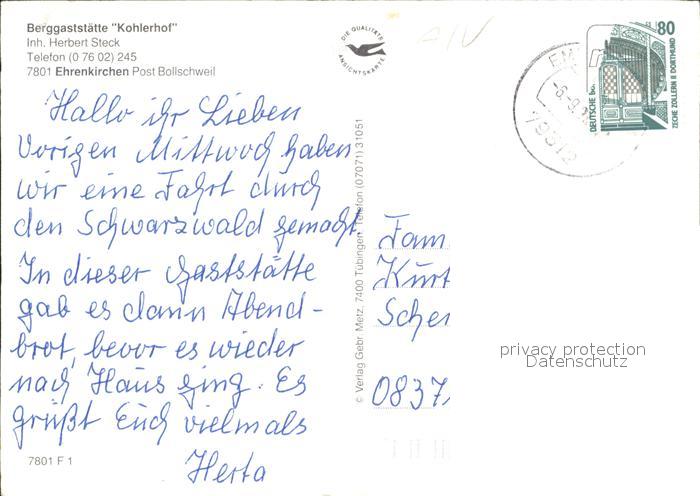 Berggaststätte "Kohlerhof"
Inh. Herbert Steck
Telefon (0 76 02) 245
7801 Ehrenkirchen Post Bollschweil
Hallo ihr Lieben
Vorigen Mittwoch haben
wir eine Fahrt durch
den Schwarzwald gemacht
In dieser Gaststätte
gab es dann Abend-
brot, bevor es wieder
nach Haus ging. Es
grüßt Euch vielmals
Herta
7801 F 1
DIE QUALITÄTS
ANSICHTSKARTE
© Verlag Gebr. Metz, 7400 Tübingen, Telefon (07071) 31051
80
DEUTSCHE BUNDESPOST
ZECHE ZOLLERN II DORTMUND
79312
Fam
Kurt
0837
privacy protection
Datenschutz